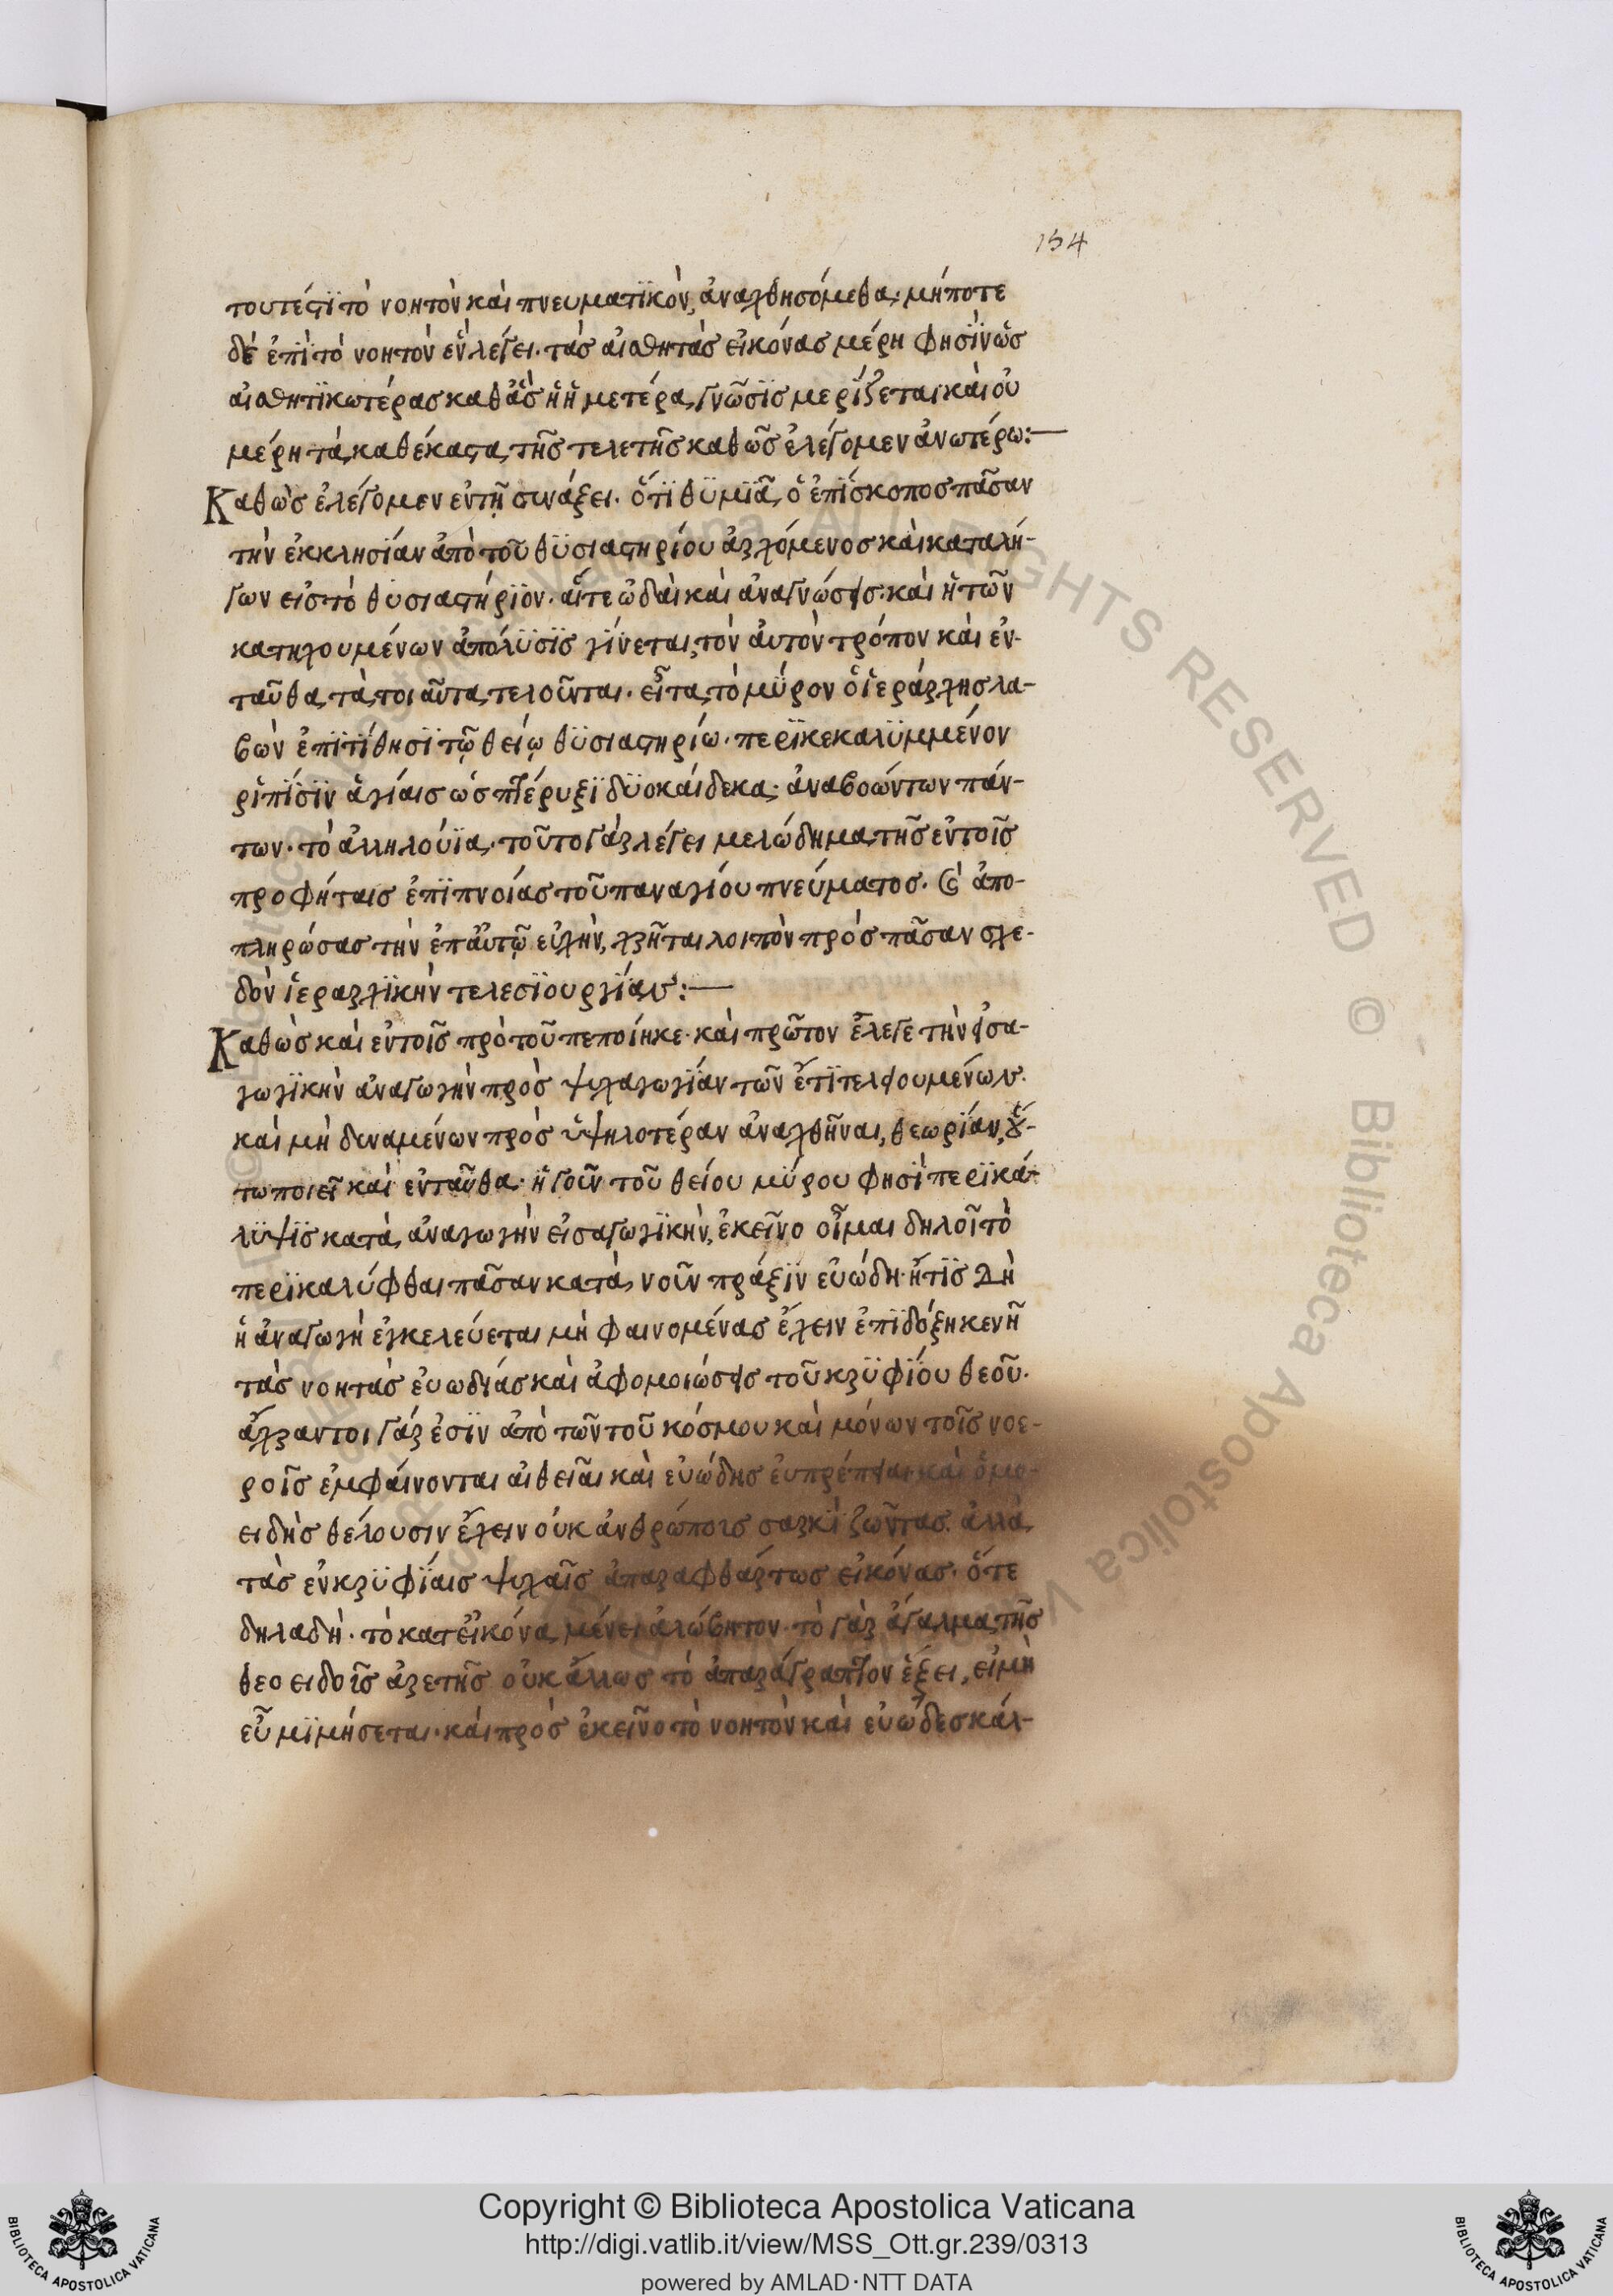 154
τουτέστι τὸ νοητὸν καὶ πνευματϊκὸν, ἀναχθησόμεθα· μήποτε
δὲ ἐπὶ τὸ νοητὸν ἓν λέγει. τὰσ αἰσθητὰσ εἰκόνασ μέρη φησϊν ὧσ
αἰσθητϊκωτέρασ καθ ἃσ ἡ ἡμετέρα γνῶσϊσ μερίζεται καὶ οὐ
μέρη τὰ καθέκαστα τῆσ τελετῆσ καθῶσ ἐλέγομεν ἀνωτέρω:—
Καθὼσ ἐλέγομεν ἐν τῆ συνάξει. ὅτϊ θϋμϊᾶ ὁ ἐπίσκοποσ πᾶσαν
τὴν ἐκκλησίαν ἀπὸ τοῦ θϋσιαστηρίου ἀρχόμενοσ καὶ καταλή-
γων εἰσ τὸ θυσιαστήριον. αἵτε ὠδαὶ καὶ ἀναγνώσεισ. καὶ ἡ τῶν
κατηχουμένων ἀπόλϋσϊσ γίνεται, τὸν ἀυτὸν τρόπον καὶ ἐν-
ταῦθα τὰ τοιαῦτα τελοῦνται. εἶτα τὸ μύρον ὁ ἱεράρχησ λα-
βὼν ἐπϊτίθησϊ τῷ θείῳ θϋσιαστηρίω. περϊκεκαλϋμμένον
ριπίσϊν ἁγίαισ ὡσ πτέρυξϊ δϋοκαίδεκα· ἀναβοώντων πάν-
των. τὸ ἀλληλούϊα. τοῦτο γὰρ λέγει μελώδημα τῆσ ἐν τοῖσ
προφήταισ ἐπϊπνοίασ τοῦ παναγίου πνεύματοσ. ϗ ἀπο-
πληρώσασ τὴν ἐπ ἀυτῷ εὐχὴν, χρῆται λοιπὸν πρὸσ πᾶσαν σχε-
δὸν ἱεραρχϊκὴν τελεσϊουργίαν:—
Καθὼσ καὶ ἐν τοῖσ πρὸ τοῦ πεποίηκε. καὶ πρῶτον ἔλεγε τὴν εἰσα-
γωγϊκὴν ἀναγωγὴν πρὸσ ψυχαγωγίαν τῶν ἔτϊ τελειουμένων.
καὶ μὴ δυναμένων πρὸσ ὑψηλοτέραν ἀναχθῆναι, θεωρίαν, οὕ-
τω ποιεῖ καὶ ἐνταῦθα. ἡ γοῦν τοῦ θείου μύρου φησὶ περϊκά-
λϋψϊσ κατὰ ἀναγωγὴν εἰσαγωγϊκὴν, ἐκεῖνο οἶμαι δηλοῖ τὸ
περϊκαλύφθαι πᾶσαν κατὰ νοῦν πρᾶξϊν εὐώδη. ἥτϊσ δὴ
ἡ ἀναγωγὴ ἐγκελεύεται μὴ φαινομένασ ἔχειν ἐπϊ δόξη κενῆ
τὰσ νοητὰσ ἐυωδίασ καὶ ἀφομοιώσεισ τοῦ κρϋφίου θεοῦ.
ἄχραντοι γάρ ἐσϊν ἀπὸ τῶν τοῦ κόσμου καὶ μόνων τοῖσ νοε-
ροῖσ ἐμφαίνονται αἱ θεῖαι καὶ εὐώδησ ἐυπρέπειαι. καὶ ὁμο-
ειδὴσ θέλουσιν ἔχειν οὐκ ἀνθρώποισ σαρκὶ ζῶντασ. ἀλλὰ
τὰσ ἐν κρϋφίαισ ψυχαῖσ ἀπαραφθάρτωσ εἰκόνασ. ὅτε
δηλαδὴ. τὸ κατ εἰκόνα μένει ἀλώβητον. τὸ γὰρ ἄγαλμα τῆσ
θεοειδοῖσ ἀρετῆσ οὐκ ἄλλωσ τὸ ἀπαράγραπτον ἕξει, εἰ μὴ
εὖ μϊμήσεται. καὶ πρὸσ ἐκεῖνο τὸ νοητὸν καὶ εὐῶδεσ κάλ-
© Biblioteca Apostolica Vaticana ALL RIGHTS RESERVED © Biblioteca Apostolica
Copyright © Biblioteca Apostolica Vaticana
http://digi.vatlib.it/view/MSS_Ott.gr.239/0313
powered by AMLAD·NTT DATA
BIBLIOTECA APOSTOLICA VATICANA
BIBLIOTECA APOSTOLICA VATICANA